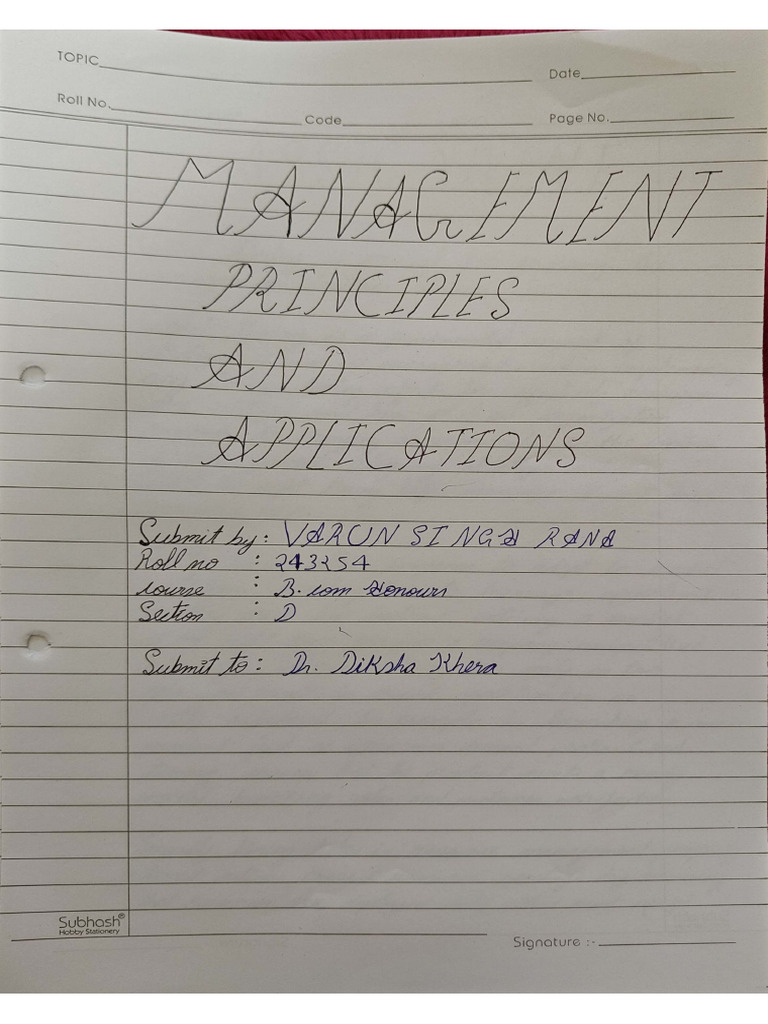 TOPIC
Date
Roll No.
Code
Page No.
MANAGEMENT
PRINCIPLES
AND
APPLICATIONS
Submit by : VARUN SINGH RANA
Roll no : 243254
course : B. com Honours
Section : D
Submit to : Dr. Diksha Khera
Subhash®
Hobby Stationery
Signature :-